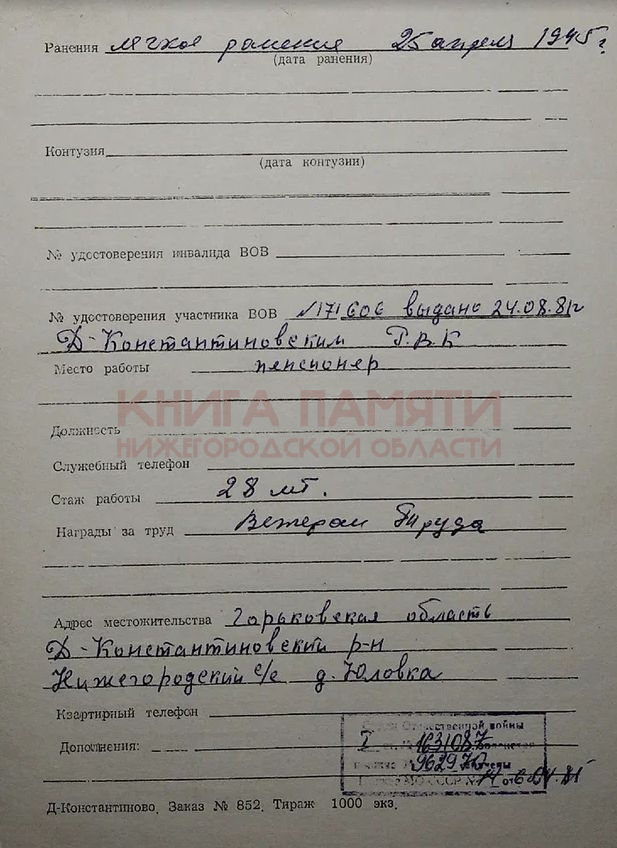 Ранения легкое ранения 25 апреля 1945 г
(дата ранения)
Контузия
(дата контузии)
№ удостоверения инвалида ВОВ
№ удостоверения участника ВОВ №171606 выдано 24.08.81г
Д-Константиновским Р.В.К
Место работы пенсионер
КНИГА ПАМЯТИ
НИЖЕГОРОДСКОЙ ОБЛАСТИ
Должность
Служебный телефон
Стаж работы 28 лет.
Награды за труд Ветеран Труда
Адрес местожительства Горьковская область
Д-Константиновский р-н
Нижегородский с/с д. Юловка
Квартирный телефон
Отечественной войны
Дополнения: I 1631087
МО СССР №
Д-Константиново. Заказ № 852. Тираж 1000 экз.